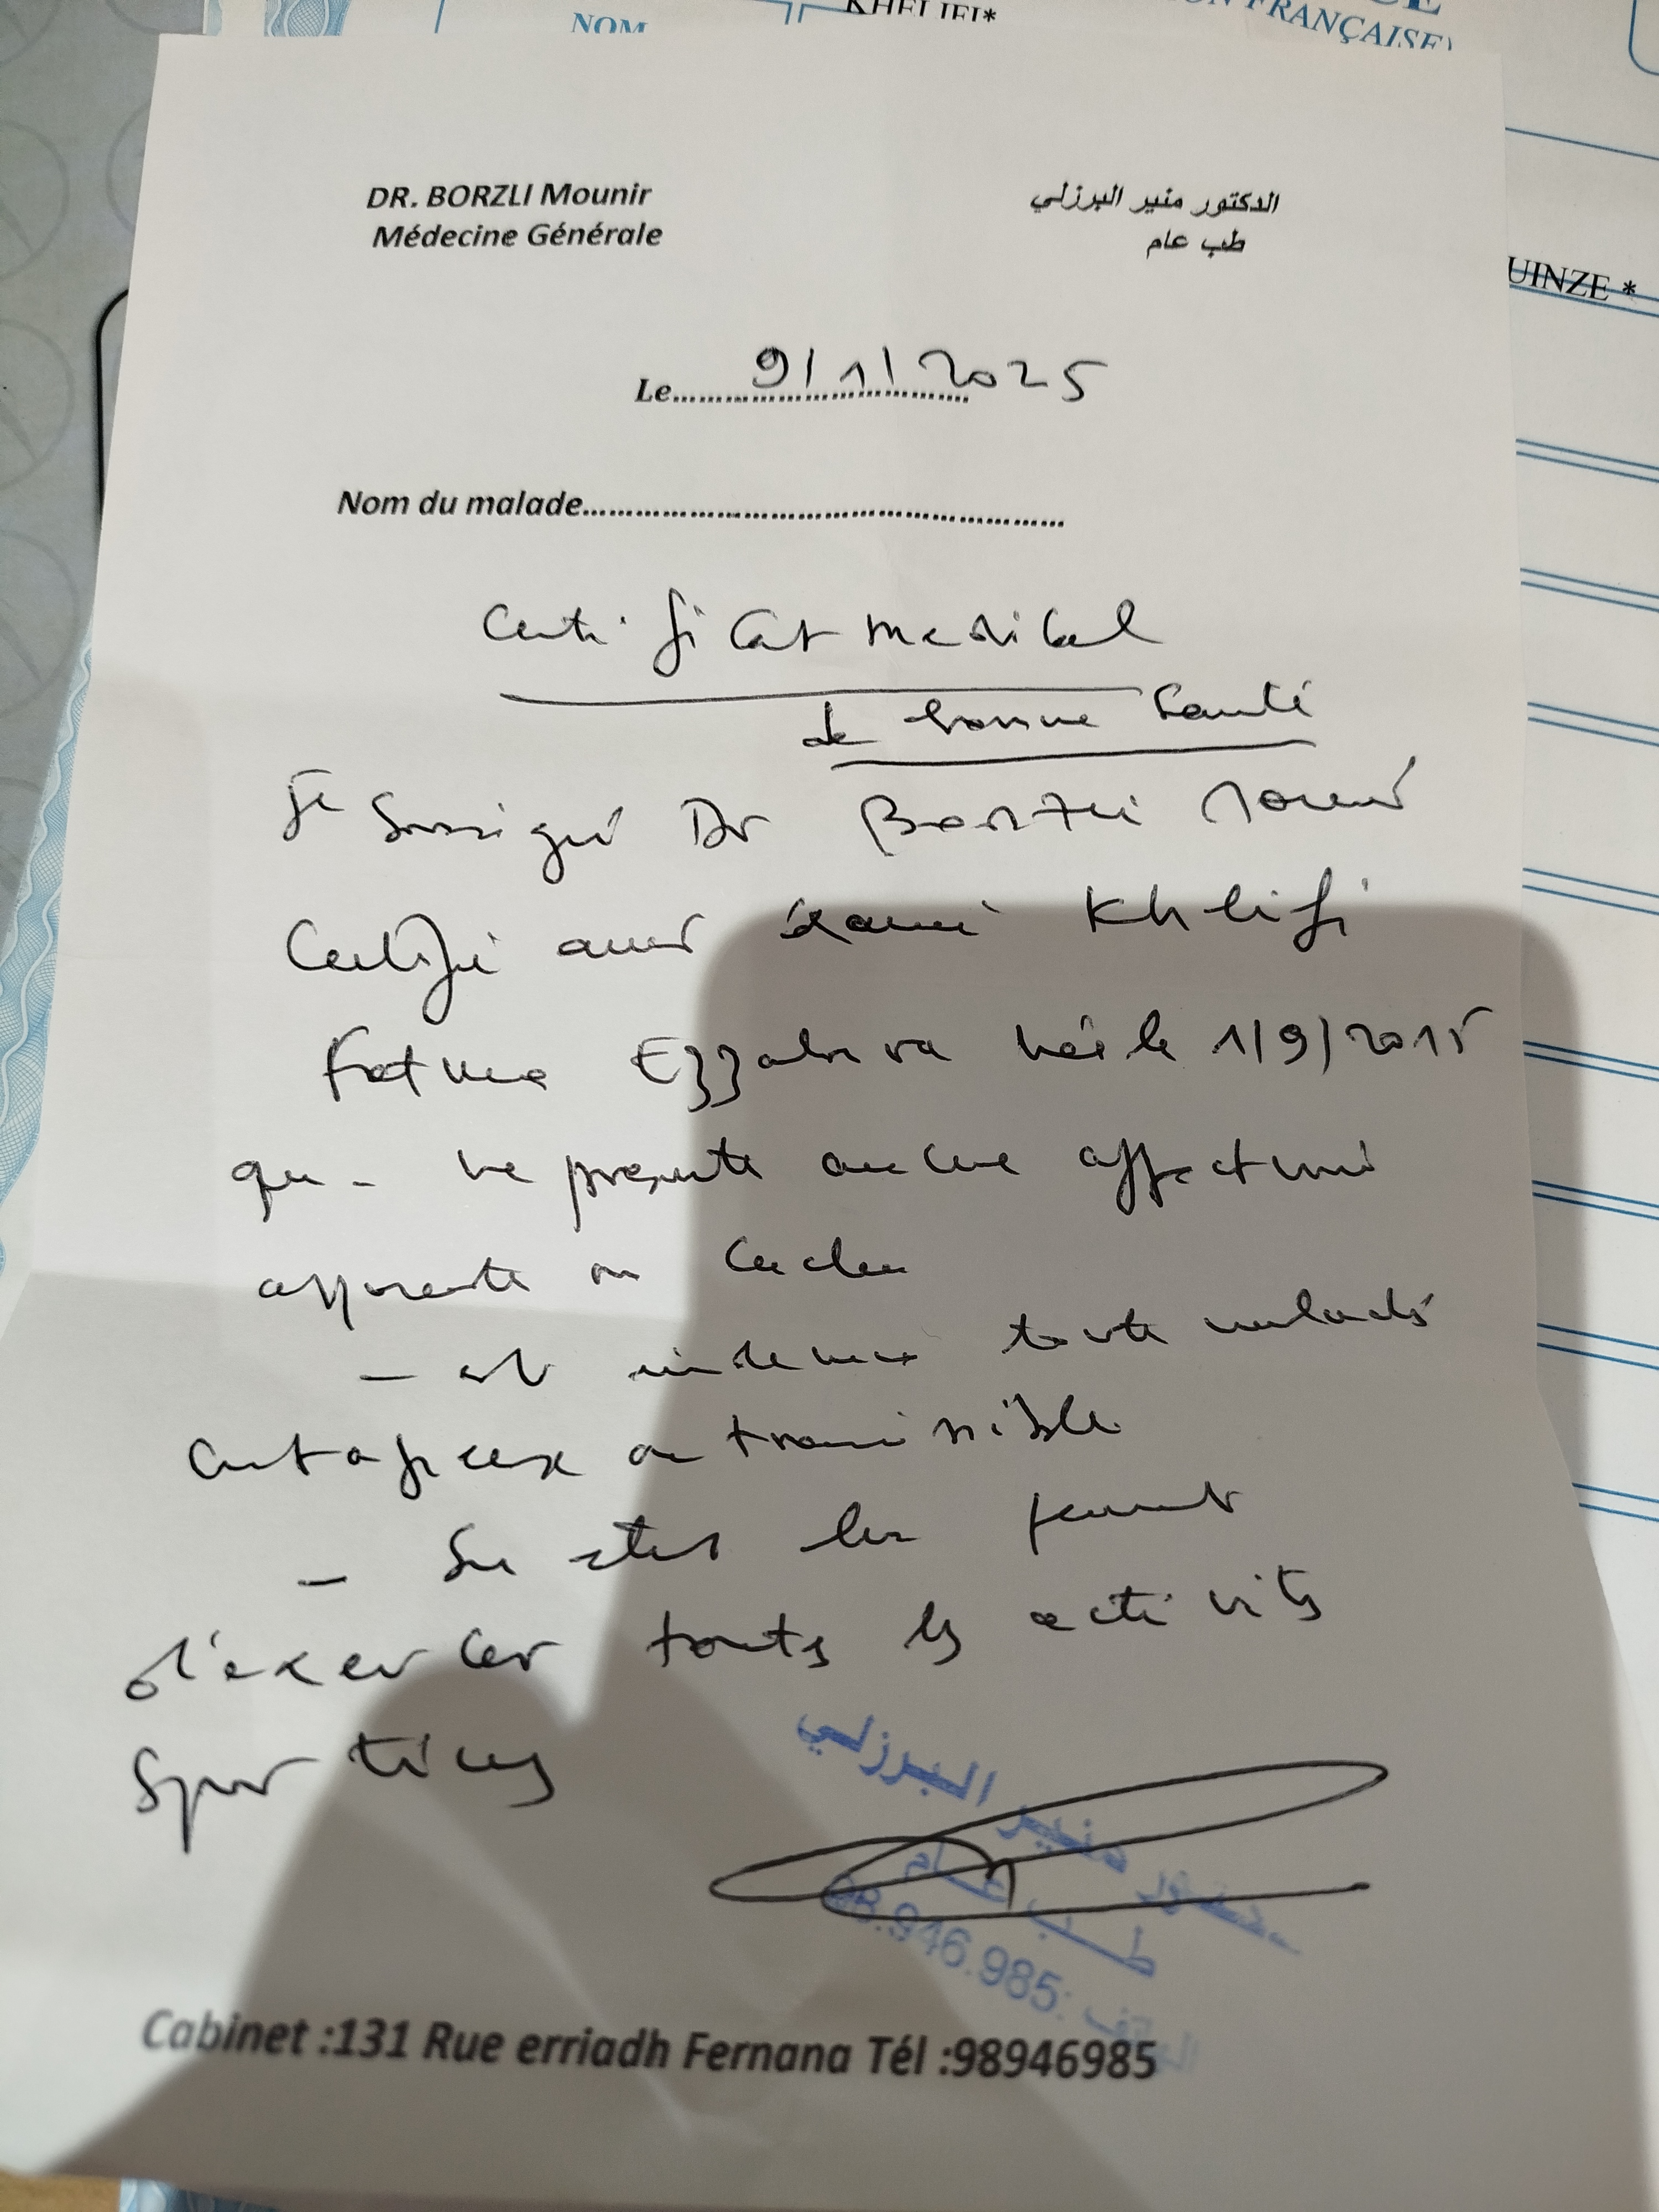 NOM
KHELIFI*
FRANÇAISE)
UINZE *
DR. BORZLI Mounir
Médecine Générale
الدكتور منير البرزلي
طب عام
Le 9/1/2025
Nom du malade
Certificat medical
de bonne Santé
Je Soussigné Dr Borzli Mounir
Certifie avoir examiné Khlifi
Fatma Ezzahra née le 1/9/2015
qui - ne présente aucune affection
apparente ou cachée
- est indemne toute maladie
contagieuse ou transmissible
- Son état lui permet
d'exercer toutes les activités
Sportives
منير البرزلي
طب عام
98.946.985:
Cabinet :131 Rue erriadh Fernana Tél :98946985